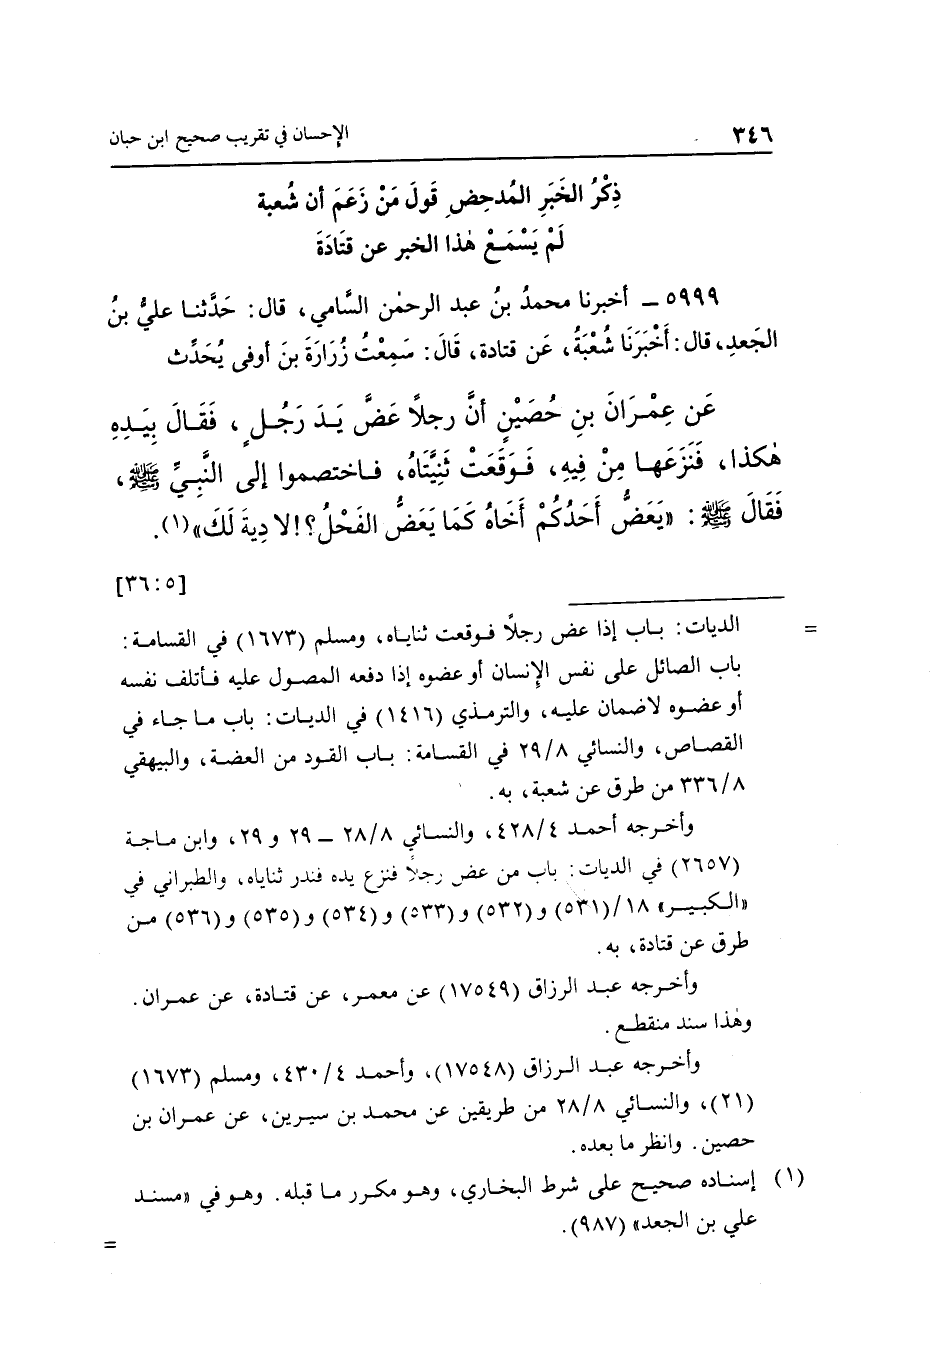 ٣٤٦ الإحسان في تقريب صحيح ابن حبان
ذِكْرُ الخَبَرِ المُدحِضِ قَولَ مَنْ زَعَمَ أن شُعبة
لَمْ يَسْمَعْ هٰذا الخبر عن قتادَةَ
٥٩٩٩ ـ أخبرنا محمدُ بنُ عبد الرحمٰن السَّامي، قال: حَدَّثنا عليُّ بنُ
الجَعدِ، قال: أَخْبَرَنَا شُعْبَةُ، عَن قتادة، قَالَ: سَمِعْتُ زُرَارَةَ بنَ أوفى يُحَدِّث
عَن عِمْرَانَ بنِ حُصَيْنٍ أنَّ رجلاً عَضَّ يَدَ رَجُلٍ، فَقَالَ بِيَدِهِ
هٰكذا، فَنَزَعَها مِنْ فِيهِ، فَوَقَعَتْ ثَنِيَّتَاهُ، فاختصموا إلى النَّبِيِّ ﷺ،
فَقَالَ ﷺ: «يَعَضُّ أَحَدُكُمْ أَخَاهُ كَمَا يَعَضُّ الفَحْلُ؟! لا دِيةَ لَكَ»(١).
[٣٦:٥]
= الديات: باب إذا عض رجلاً فوقعت ثناياه، ومسلم (١٦٧٣) في القسامة:
باب الصائل على نفس الإنسان أو عضوه إذا دفعه المصول عليه فأتلف نفسه
أو عضوه لاضمان عليه، والترمذي (١٤١٦) في الديات: باب ماجاء في
القصاص، والنسائي ٢٩/٨ في القسامة: باب القود من العضة، والبيهقي
٣٣٦/٨ من طرق عن شعبة، به.
وأخرجه أحمد ٤٢٨/٤، والنسائي ٢٨/٨ ـ ٢٩ و ٢٩، وابن ماجة
(٢٦٥٧) في الديات: باب من عض رجلاً فنزع يده فندر ثناياه، والطبراني في
«الكبير» ١٨/(٥٣١) و(٥٣٢) و(٥٣٣) و(٥٣٤) و(٥٣٥) و(٥٣٦) من
طرق عن قتادة، به.
وأخرجه عبد الرزاق (١٧٥٤٩) عن معمر، عن قتادة، عن عمران.
وهٰذا سند منقطع.
وأخرجه عبد الرزاق (١٧٥٤٨)، وأحمد ٤٣٠/٤، ومسلم (١٦٧٣)
(٢١)، والنسائي ٢٨/٨ من طريقين عن محمد بن سيرين، عن عمران بن
حصين. وانظر ما بعده.
(١) إسناده صحيح على شرط البخاري، وهو مكرر ما قبله. وهو في «مسند
علي بن الجعد» (٩٨٧). =